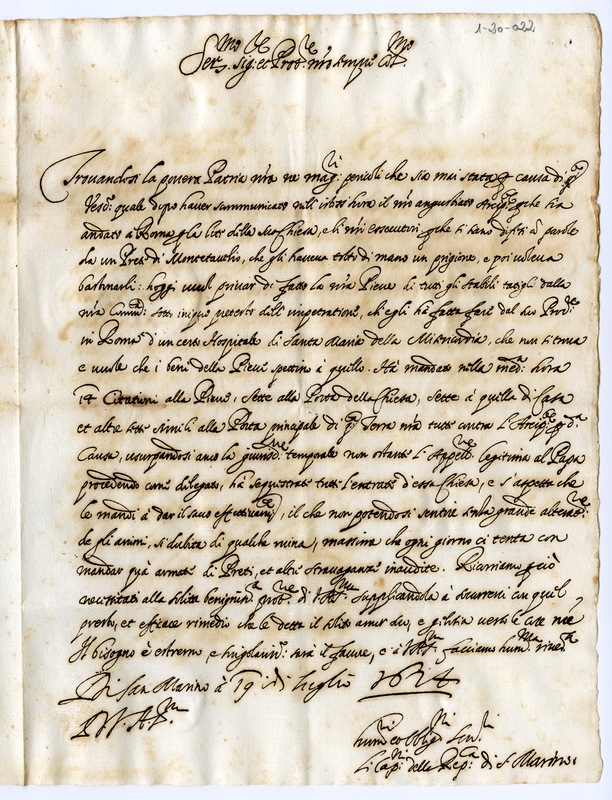 1-20-022
Ser.mo Sig.re et Prot.re n'ro sempre
Trovandosi la povera Patria n'ra ne mag.ri pericoli che sia mai stata causa di q.to
Vesc.o quale dopo haver scummunicato nell' hora il n'ro Arcip.te che era
andato à Roma la lite della sua Chiesa, e li n'ri che
da un Prete di Montetauelio, che gli haveva tolto di mano un prigione, e poi voleva
bastonarli: hoggi vuol privar di fatto la n'ra Pieve di tutti gli stabili
n'ra Comm.tà sotto iniquo pretesto dell' impetratione, ch'egli hà fatto fare dal suo
in Roma d'un certo Hospitale di Santa Maria della Misericordia, che non si trova
e vuole che i beni della Pieve spettino à quello. Hà mandato nella med.a hora
14 Citationi alla Pieve, sette alla Porta della Chiesa, sette à quella di casa
et altre sette simili alla Porta principale di q.ta Terra n'ra tutte contra l'Arcip.te p d.a
Causa, usurpandosi anco la giurisd.ne temporale non ostante l'Appell.ne legitima al Papa
procedendo come delegato, hà sequestrate tutte l'entrate d'essa Chiesa, e s'aspetta che
le mandi à dar il sacco effettivam.te, il che non potendosi sentire senza grande alterat.ne
de gli animi, si dubita di qualche ruina, massime che ogni giorno ci tenta con
mandar quà armate di Preti, et altre stravaganze inaudite. Ricorriamo p ciò
necessitati alla solita benignissima prot.ne di V.A. supplicandola à soccorrerci con quel
presto, et efficace rimedio che le detta il solito amor suo, e giustitia verso le cose n're
Il bisogno è estremo, e singolariss.o sarà il favore, e à V.A. facciamo hum.ma river.za
Di San Marino à 19 di luglio 1614
D. V. A. S.ma
hum.mi et oblig.mi Ser.ri
li Cap.ni della Rep.ca di S. Marino